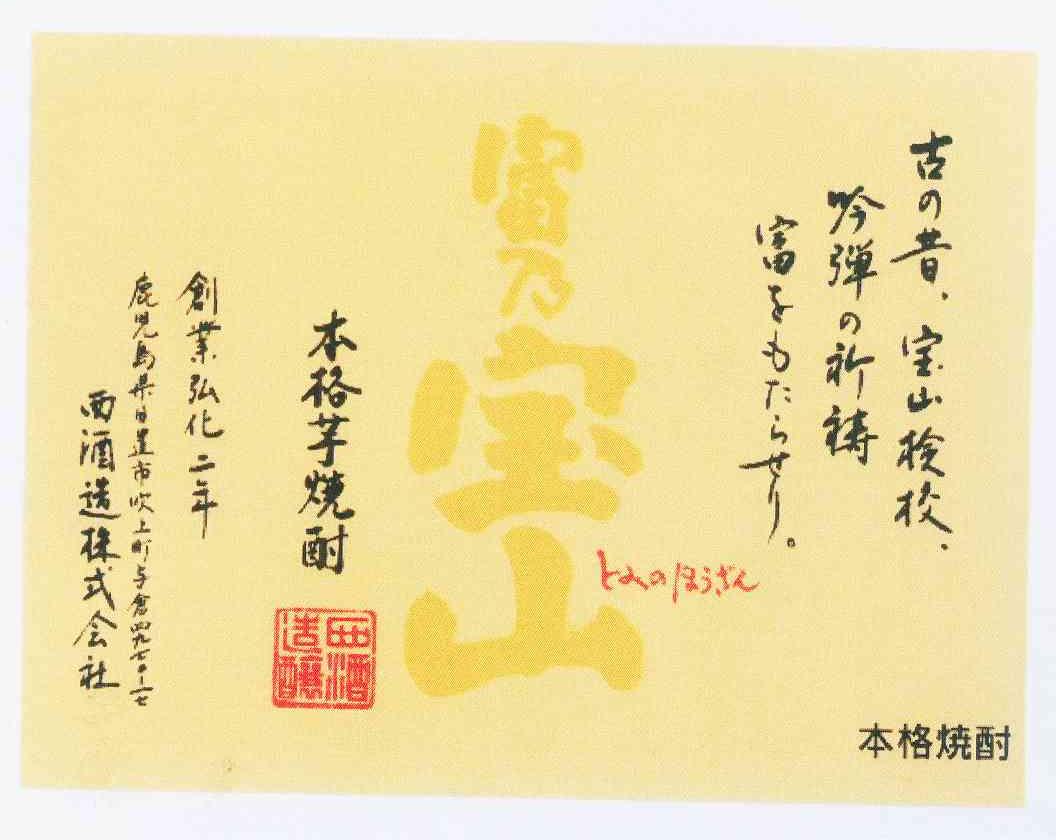 古の昔、宝山検校、
吟弾の祈祷
富をもたらせり。
富乃宝山
とみのほうざん
本格芋焼酎
西酒
造醸
創業弘化二年
鹿児島県日置市吹上町与倉四九七〇-一七
西酒造株式会社
本格焼酎